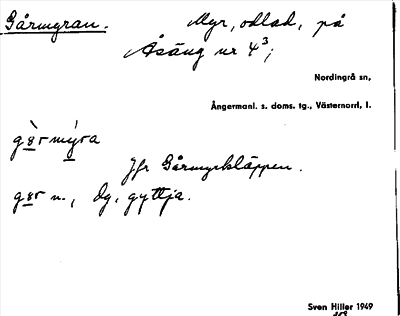 Gårmyran. Myr, odlad, på
Åsäng nr 4³;
Nordingrå sn,
Ångermanl. s. doms. tg., Västernorrl. l.
gårmýra
Jfr Gårmyrkläppen.
gor n., dy, gyttja.
Sven Hiller 1949